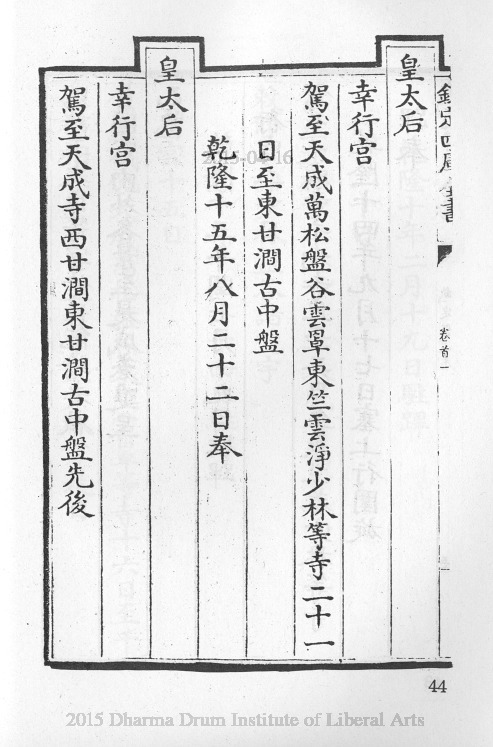 欽定四庫全書
卷首一
皇太后
幸行宮
駕至天成萬松盤谷雲罩東竺雲淨少林等寺二十一
日至東甘澗古中盤
乾隆十五年八月二十二日奉
皇太后
幸行宮
駕至天成寺西甘澗東甘澗古中盤先後
44
2015 Dharma Drum Institute of Liberal Arts